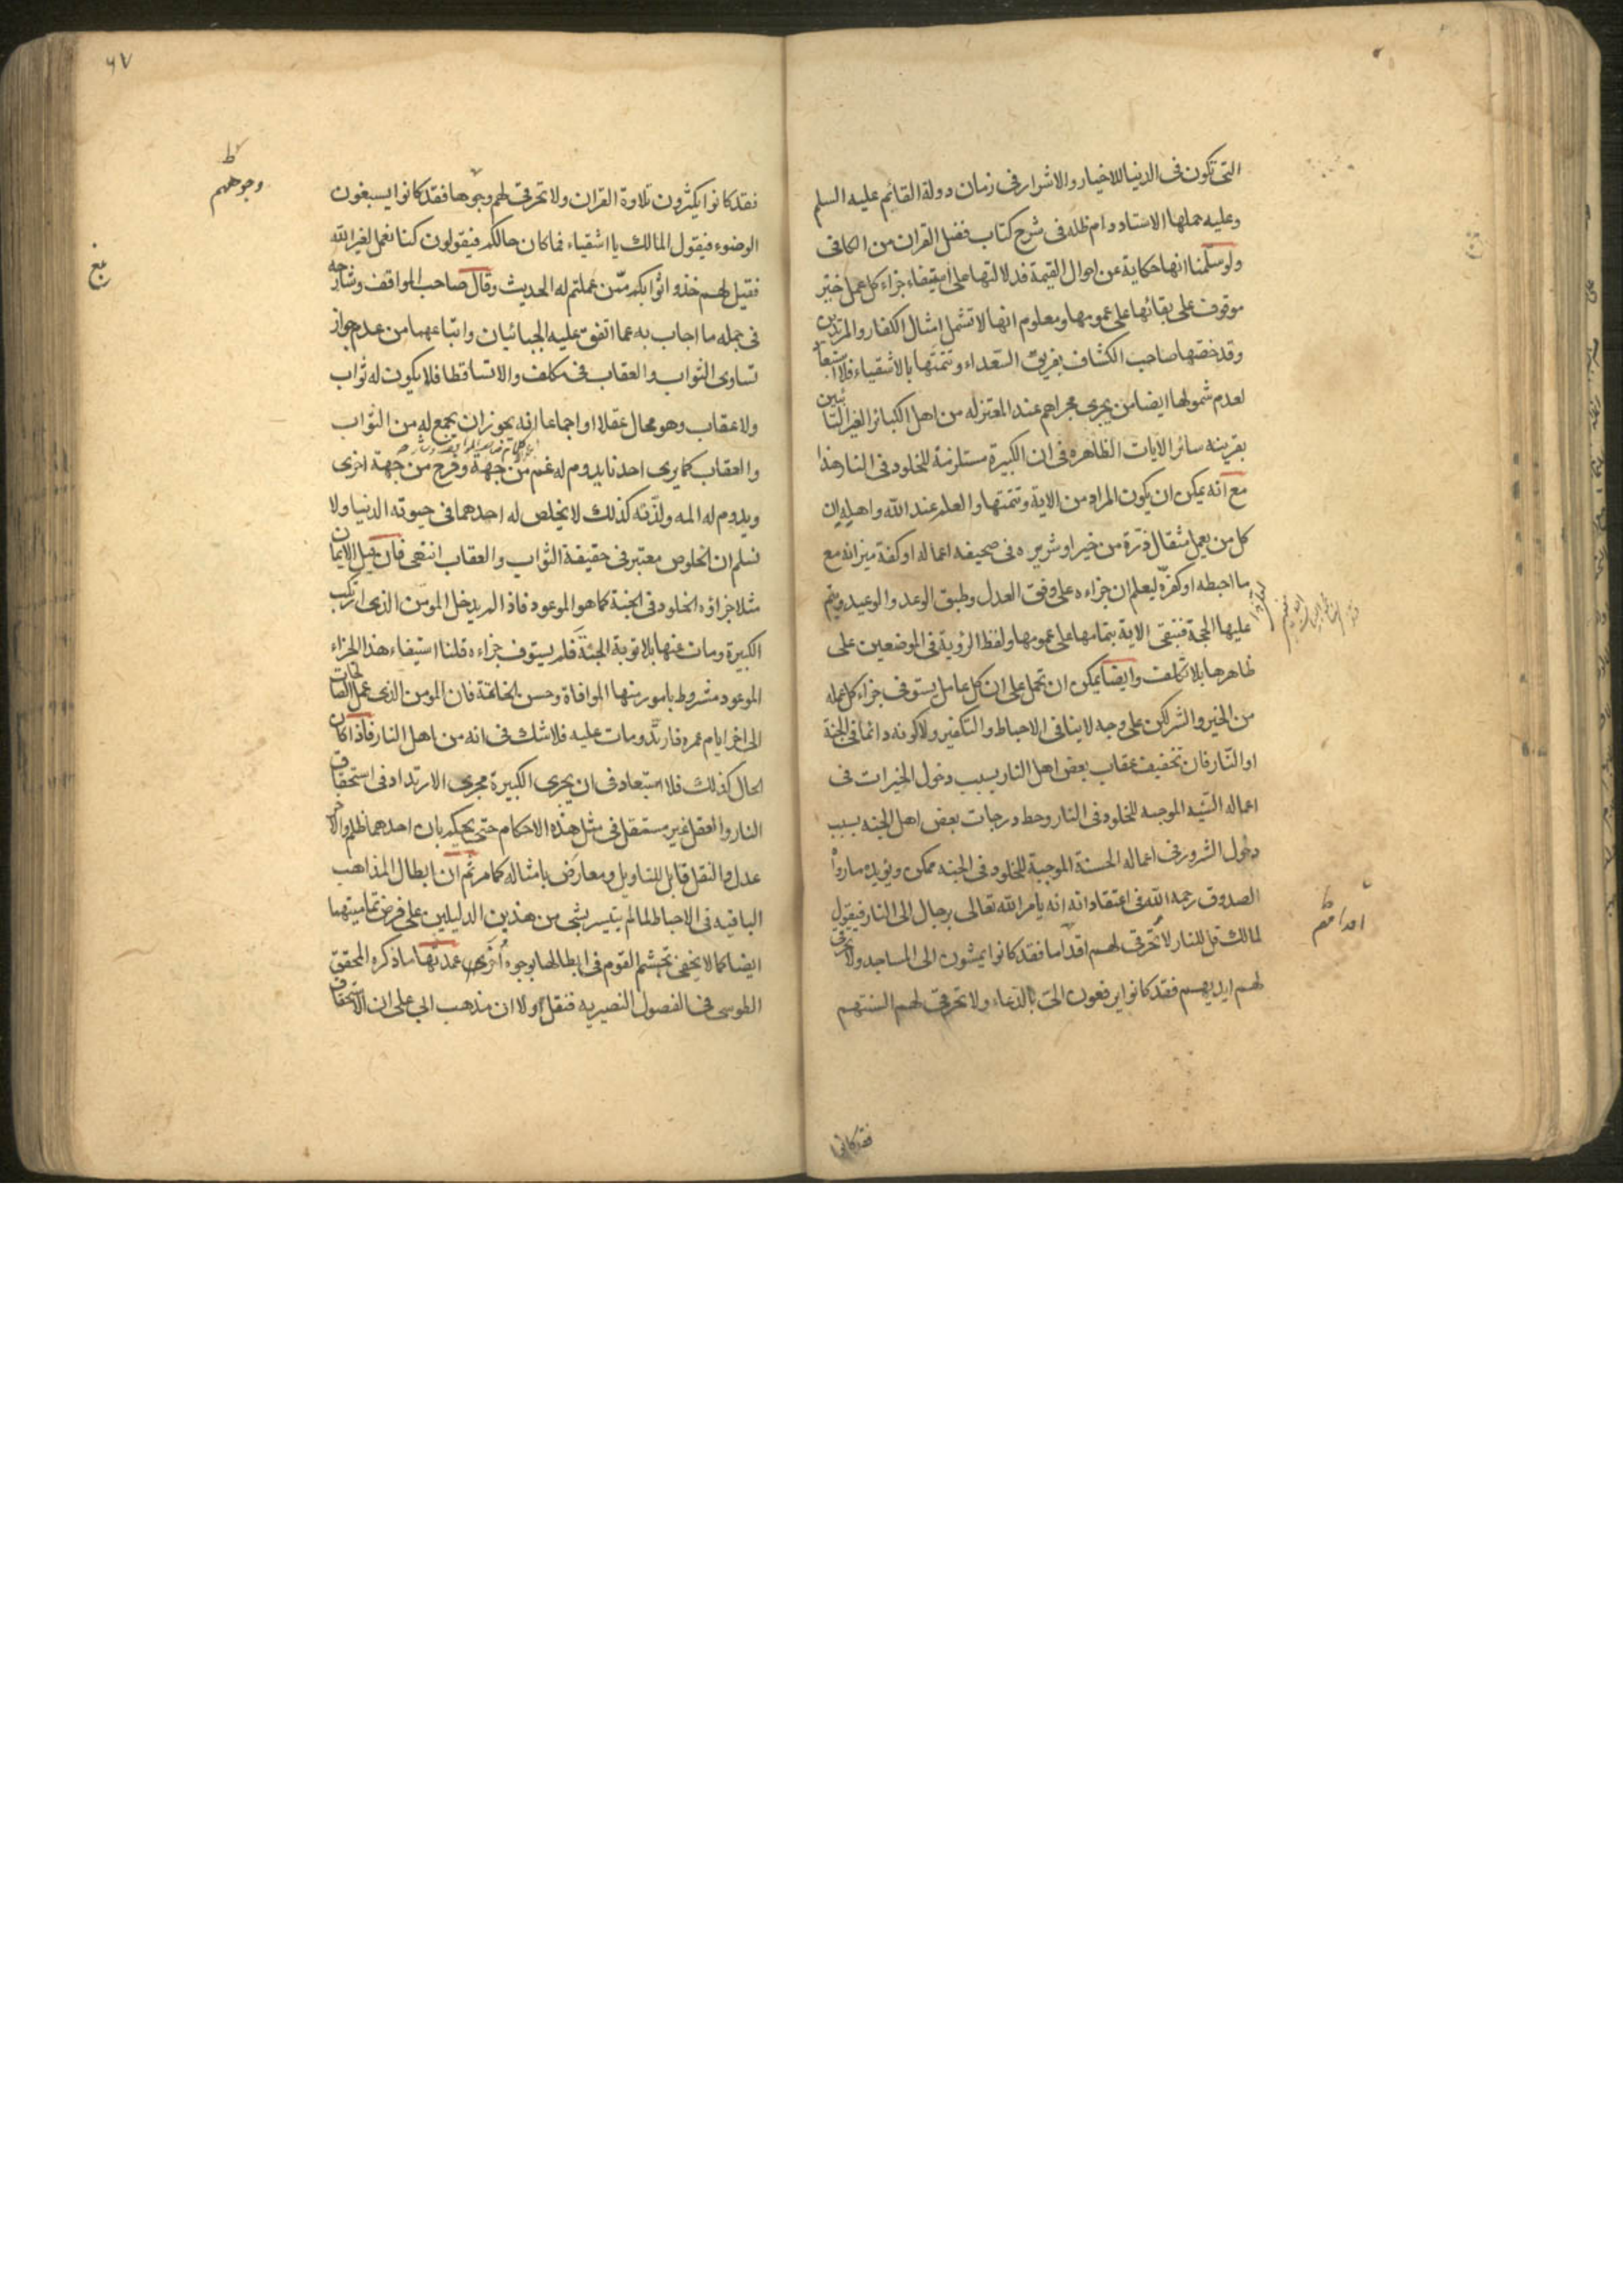 التى تكون فى الدنيا للاخيار والاشرار فى زمان دولة القائم عليه السلم
وعليه حملها الاستاد دام ظله فى شرح كتاب فضل القران من الكافى
ولو سلّمنا انها حكاية عن احوال القيمة فدلالتها على استيفاء جزاء كل عمل
موقوف على بقائها على عمومها ومعلوم انها لا تشمل امثال الكفار والمرتدين
وقد خصّتها صاحب الكشاف بفريق السّعداء وتتمتها بالاشقياء فلا استبعاد
لعدم شمولها ايضا من يجرى مجراهم عند المعتزله من اهل الكبائر الغير التائبين
بقرينه سائر الايات الظاهره فى ان الكبيرة مستلزمة للخلود فى النار هذا
مع انه يمكن ان يكون المراد من الاية وتتمتها والعلم عند الله واهله ان
كل من يعمل مثقال ذرّة من خير او شر يره فى صحيفه اعماله او كفة ميزانه مع
ما احبطه او كفّره ليعلم ان جزاءه على وفق العدل وطبق الوعد والوعيد ويتم
عليها الحجة فتبقى الاية بتمامها على عمومها ولفظ الرؤية فى الموضعين على
ظاهرها بلا تكلف وايضا يمكن ان تحمل على ان كل عامل يستوفى جزاء كل عمله
من الخير والشر لكن على وجه لا ينافى الاحباط والتكفير ولا كونه دائما فى الجنة
او النار فان تخفيف عقاب بعض اهل النار بسبب دخول الخيرات فى
اعماله السّيّه الموجبه للخلود فى النار وحط درجات بعض اهل الجنه بسبب
دخول الشرور فى اعماله الحسنة الموجبة للخلود فى الجنه ممكن ويؤيده ما رواه
الصدوق رحمه الله فى اعتقاداته انه يامر الله تعالى برجال الى النار فيقول
لمالك قل للنار لا تُحرقى لهم اقدّاما فقد كانوا يمشون الى المساجد ولا تحرقى
لهم ايديهم فقد كانوا يرفعون الىّ بالدّعاء ولا تحرقى لهم السنتهم
اقدامهم
فقد كانوا
٦٧
فقد كانوا يكثرون تلاوة القران ولا تحرقى لهم وجوها فقد كانوا يسبغون
الوضوء فيقول المالك يا اشقياء فما كان حالكم فيقولون كنا نعمل لغير الله
فقيل لهم خذوا ثوابكم ممّن عملتم له الحديث وقال صاحب المواقف وشارحه
فى جمله ما اجاب به عما اتفق عليه الجبائيان واتباعهما من عدم جواز
تساوى الثواب والعقاب فى مكلف والا تساقطا فلا يكون له ثواب
ولا عقاب وهو محال عقلا او اجماعا انه يجوز ان يجمع له من الثواب
والعقاب كما يرى احدنا يدوم له غم من جهة وفرح من جهة اخرى
ويدوم له المه ولذّته كذلك لا يخلص له احدهما فى حيوته الدنيا ولا
نسلم ان الخلوص معتبر فى حقيقة الثواب والعقاب انتهى فان قيل الايمان
مثلا جزاؤه الخلود فى الجنة كما هو الموعود فاذا لم يدخل المومن الذى ارتكب
الكبيرة ومات عنها بلا توبة الجنّة فلم يستوف جزاءه قلنا استيفاء هذا الجزاء
الموعود مشروط بامور منها الموافاة وحسن الخاتمة فان المومن الذى عمل الصالحات
الى اخر ايام عمره فارتدّ ومات عليه فلا شك فى انه من اهل النار فاذا كان
الحال كذلك فلا استبعاد فى ان يجرى الكبيرة مجرى الارتداد فى استحقاق
النار والعقل غير مستقل فى مثل هذه الاحكام حتى يحكم بان احدهما ظلم والاخر
عدل والنقل قابل للتاويل ومعارَض بامثاله كما مر ثم ان ابطال المذاهب
الباقيه فى الاحباط لما لم يتيسر بشى من هذين الدليلين على فرض تماميتهما
ايضا كما لا يخفى تجشم القوم فى ابطالها بوجوه اُخرى عمدتها ما ذكره المحقق
الطوسى فى الفصول النصيريه فنقل اولا ان مذهب ابى على ان الاستحقاق
وجوههم